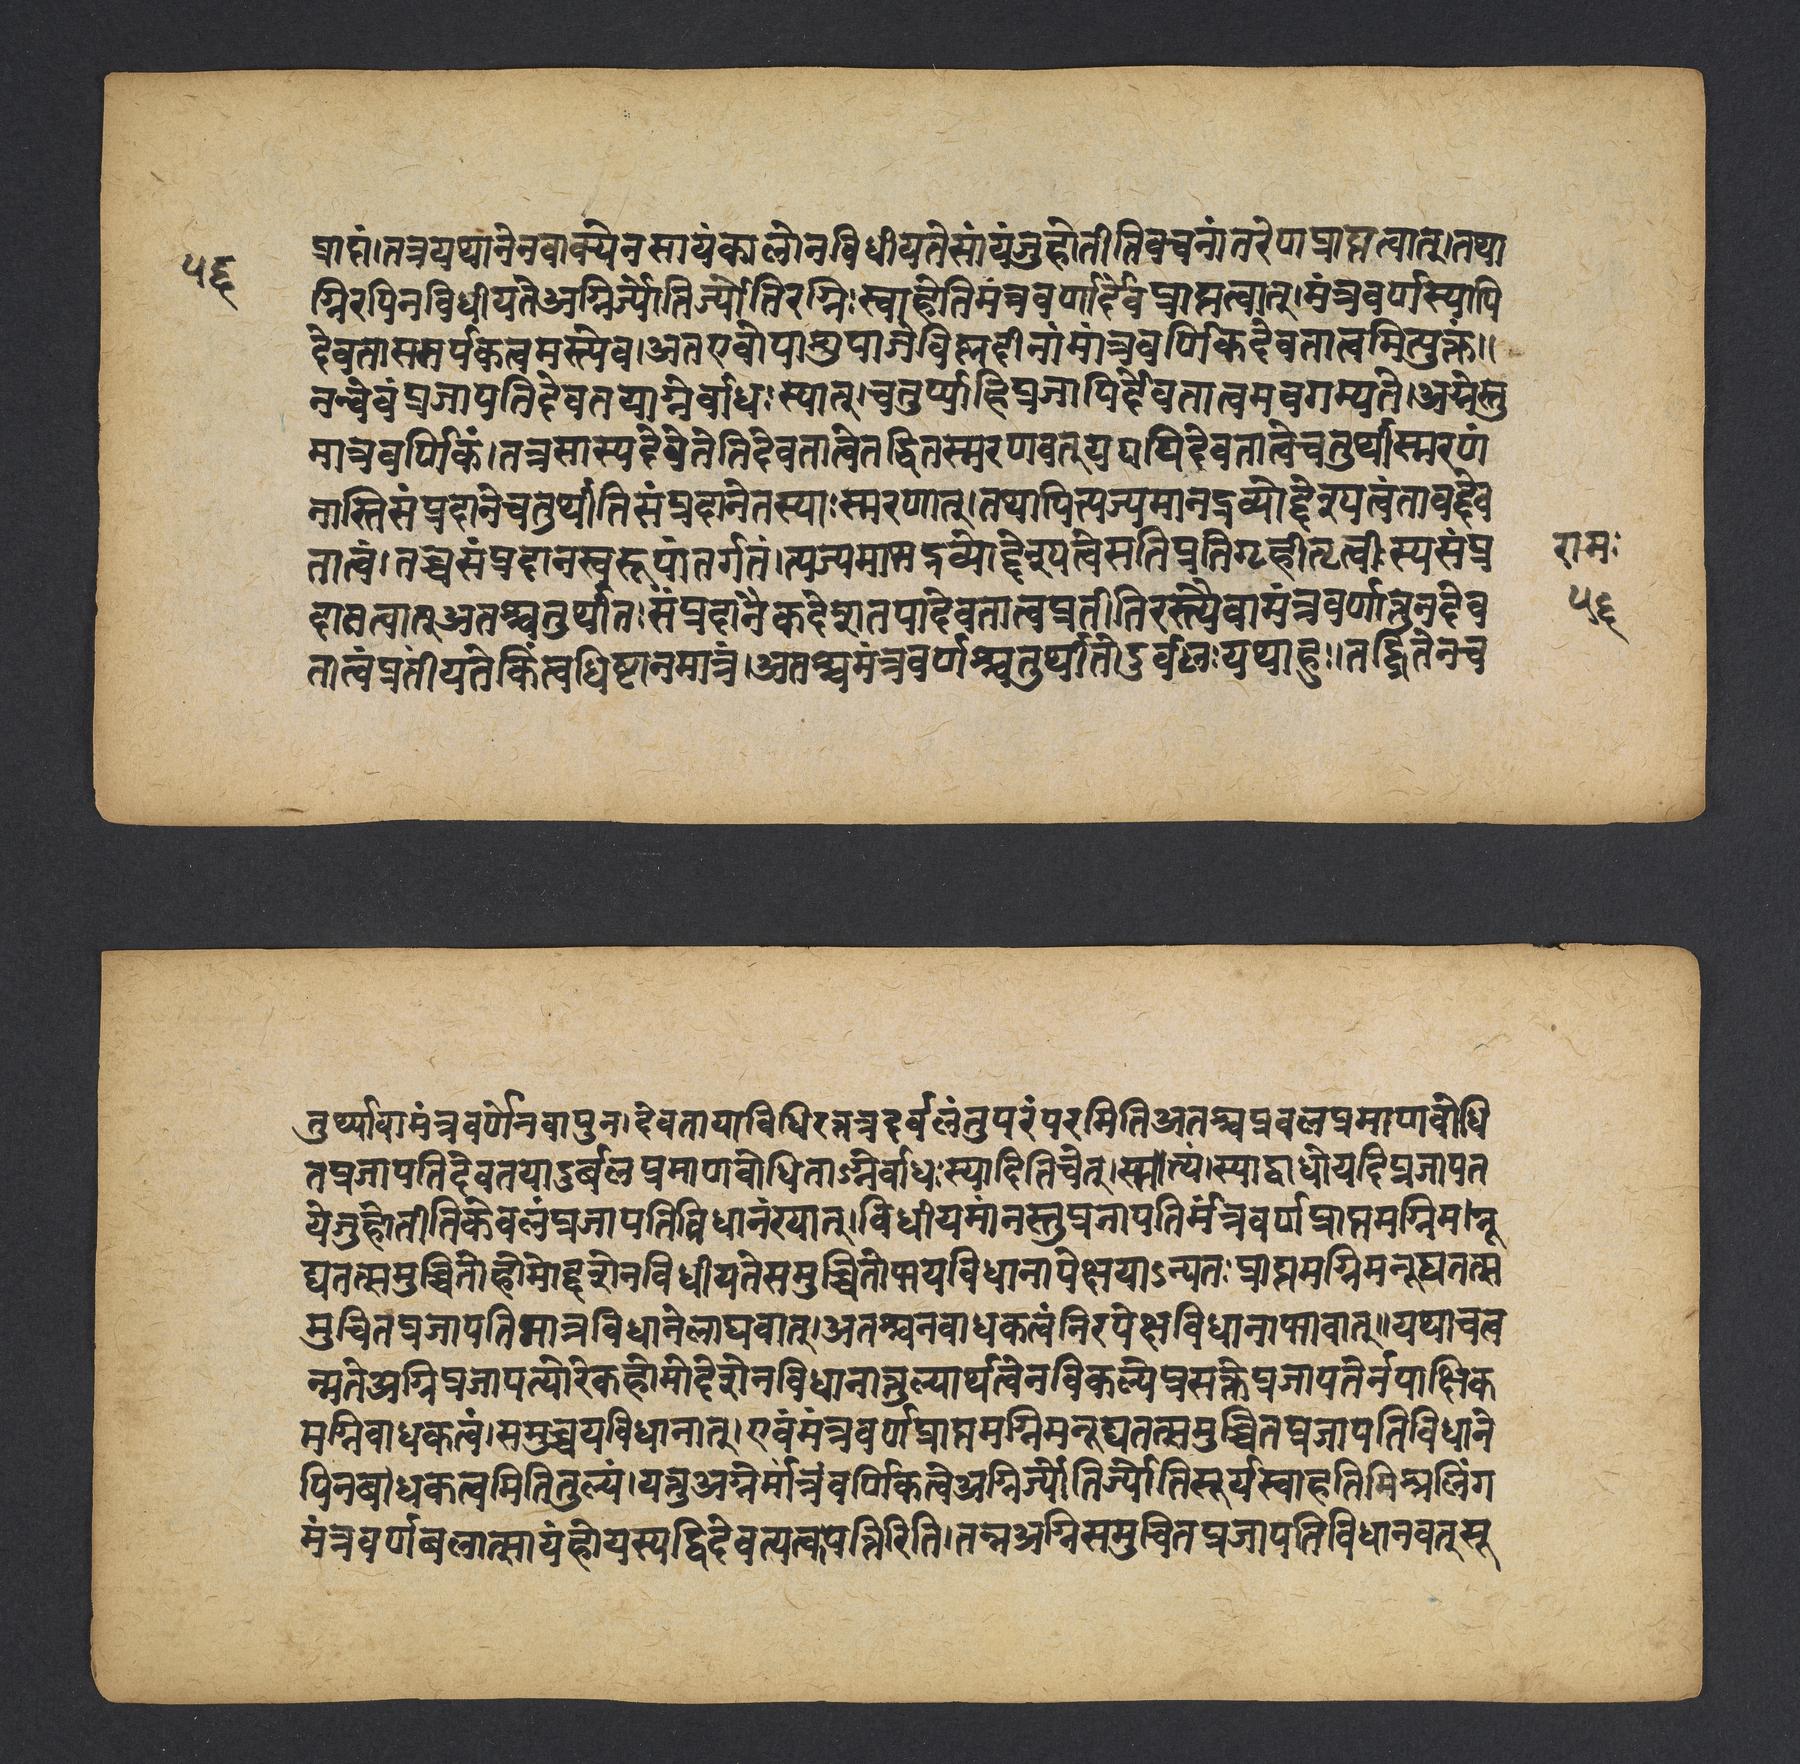 प्राप्तं।तत्रयथानेनवाक्येनसायंकालोनविधीयतेसायंजुहोतीतिवचनांतरेणप्राप्तत्वात्।तथा
५६
ग्निरपिनविधीयतेअग्निर्ज्योतिर्ज्योतिरग्निःस्वाहेतिमंत्रवर्णादेवप्राप्तत्वात्।मंत्रवर्णस्यापि
देवतासमर्पकत्वमस्त्येव।अतएवोपांशुयाजेविष्णवादीनांमांत्रवर्णिकंदेवतात्वमित्युक्तं॥
नन्वेवंप्रजापतिदेवतयाग्नेर्बाधःस्यात्।चतुर्थ्याहिप्रजापिर्देवतात्वमवगम्यते।अग्नेस्तु
मांत्रवर्णिकं।तत्रसास्यदेवेतेतिदेवतात्वेतद्धितस्मरणवत्यद्यपिदेवतात्वेचतुर्थीस्मरणं
नास्तिसंप्रदानेचतुर्थीतिसंप्रदानेतस्याःस्मरणात्।तथापित्यज्यमानद्रव्योद्देश्यत्वंतावद्देव
तात्वं।तच्चसंप्रदानस्वरूपांतर्गतं।त्यज्यमानद्रव्योद्देश्यत्वेसतिप्रतिगृहीतृत्वस्यसंप्र
रामः
दानत्वात्अतश्चतुर्थीतःसंप्रदानैकदेशतयादेवतात्वप्रतीतिरस्त्येवमंत्रवर्णात्तुनदेव
५६
तात्वंप्रतीयतेकिंत्वधिष्टानमात्रं।अतश्चमंत्रवर्णश्चतुर्थीतोदुर्बलःयथाहुः।तद्धितेनच
तुर्थ्यावामंत्रवर्णेनवापुनः।देवतायाविधिस्तत्रदुर्बलंतुपरंपरमितिअतश्चप्रबलप्रमाणबोधि
तप्रजापतिदेवतयादुर्बलप्रमाणबोधिताऽग्नेर्बाधःस्यादितिचेत्।सत्यं।स्याद्बाधोयदिप्रजापत
येजुहोतीतिकेवलंप्रजापतिविधानंस्यात्।विधीयमानस्तुप्रजापतिर्मंत्रवर्णप्राप्तमग्निम।नू
द्यतत्समुच्चितोहोमोद्देशेनविधीयतेसमुच्चितोभयविधानापेक्षयाऽन्यतःप्राप्तमग्निमनूद्यतत्स
मुचितप्रजापतिमात्रविधानेलाघवात्।अतश्चनबाधकत्वंनिरपेक्षविधानाभावात्॥यथाचत्व
न्मतेअग्निप्रजापत्योरेकहोमोद्देशेनविधानात्तुल्यार्थत्वेनविकल्पेप्रसक्तेप्रजापतेर्नपाक्षिक
मग्निबाधकत्वं।समुच्चयविधानात्।एवंमंत्रवर्णप्राप्तमग्निमनूद्यतत्समुच्चितप्रजापतिविधाने
पिनबाधकत्वमितितुल्यं।यत्तुअग्नेर्मांत्रवर्णिकत्वेअग्निर्ज्योतिर्ज्योतिसूर्यस्वाहतिमिश्रलिंग
मंत्रवर्णबलात्सायंहोयस्यद्विदेवत्यत्वापत्तिरिति।तन्नअग्निसमुचितप्रजापतिविधानवत्सू